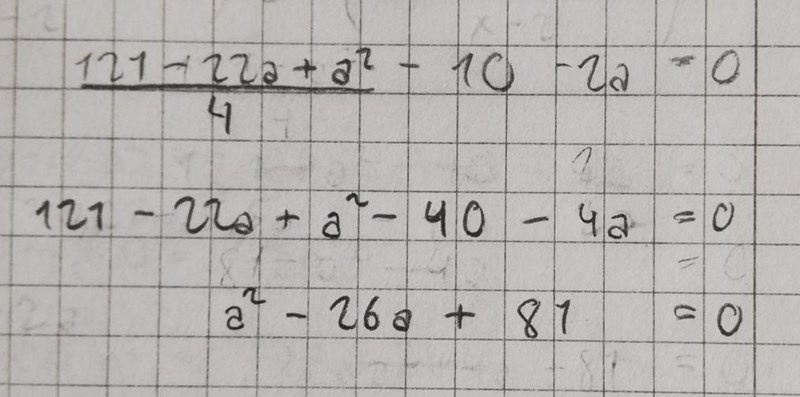 121 - 22a + a² / 4 - 10 - 2a = 0
121 - 22a + a² - 40 - 4a = 0
a² - 26a + 81 = 0